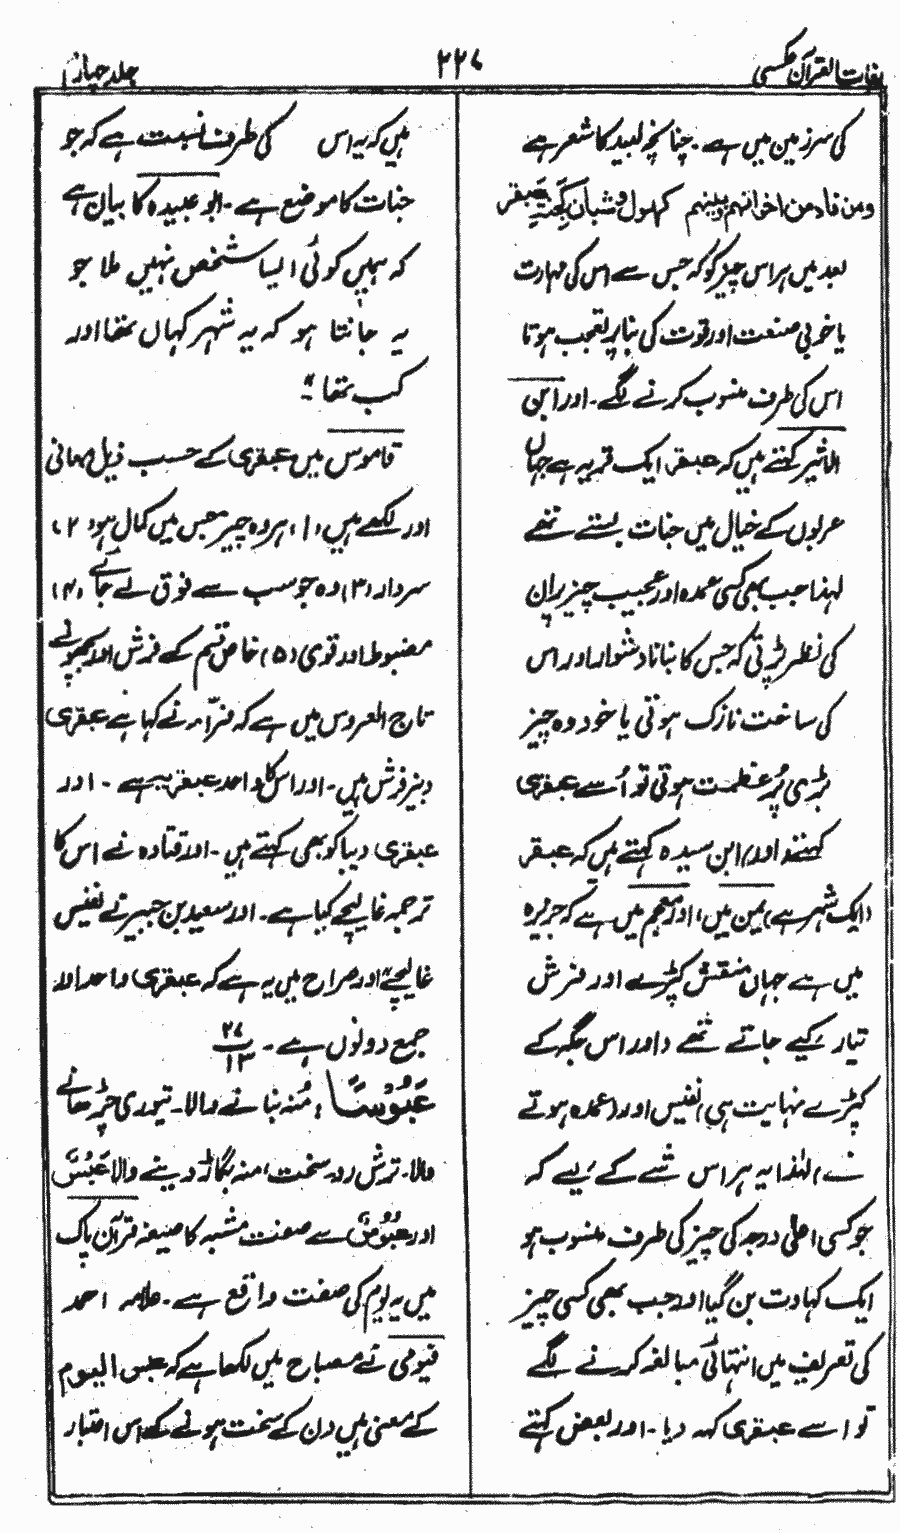 لغات القرآن عکسی
۲۲۷
جلد چہارم
کی سرزمین میں ہے۔ چنانچہ لبید کا شعر ہے
ومن فاد من اخوانہم وبنیہم کہول وشبان کجنۃ عبقر
بعد میں ہر اس چیز کو کہ جس سے اس کی مہارت
یا خوبی صنعت اور قوت کی بنا پر تعجب ہوتا
اس کی طرف منسوب کرنے لگے۔ اور ابن
الاثیر کہتے ہیں کہ عبقر ایک قریہ ہے جہاں
عربوں کے خیال میں جنات بستے تھے
لہذا جب بھی کسی عمدہ اور عجیب چیز پر ان
کی نظر پڑتی کہ جس کا بنانا دشوار اور اس
کی ساخت نازک ہوتی یا خود وہ چیز
بڑی پُر عظمت ہوتی تو اُسے عبقری
کہتے، اور ابن سیدہ کہتے ہیں کہ عبقر
(ایک شہر ہے) یمن میں، اور معجم میں ہے کہ جزیرہ
میں ہے جہاں منقش کپڑے اور فرش
تیار کیے جاتے تھے (اور اس جگہ کے
کپڑے نہایت ہی نفیس اور عمدہ ہوتے
تھے) لہٰذا یہ ہر اس شے کے لیے کہ
جو کسی اعلی درجہ کی چیز کی طرف منسوب ہو
ایک کہاوت بن گیا اور جب بھی کسی چیز
کی تعریف میں انتہائی مبالغہ کرنے لگے
تو اسے عبقری کہہ دیا۔ اور بعض کہتے
ہیں کہ یہ اس کی طرف نسبت ہے کہ جو
جنات کا موضع ہے۔ ابو عبیدہ کا بیان ہے
کہ ہمیں کوئی ایسا شخص نہیں ملا جو
یہ جانتا ہو کہ یہ شہر کہاں تھا اور
کب تھا"
قاموس میں عبقری کے حسب ذیل معانی
اور لکھے ہیں (۱) ہر وہ چیز جس میں کمال ہو، (۲)
سردار (۳) وہ جو سب سے فوق لے جائے (۴)
مضبوط اور قوی (۵) خاص قسم کے فرش اور بچھونے
تاج العروس میں ہے کہ فرّاء نے کہا ہے عبقری
دبیز فرش ہیں۔ اور اس کا واحد عبقریہ ہے۔ اور
عبقری دیبا کو بھی کہتے ہیں۔ اور قتادہ نے اس کا
ترجمہ غالیچے کیا ہے۔ اور سعید بن جبیر نے نفیس
غالیچے" اور صراح میں یہ ہے کہ عبقری واحد اور
جمع دونوں ہے۔ ۲۷/۱۳
عَبُوْسًا : مُنہ بنانے والا۔ تیوری چڑھانے
والا۔ ترش رو۔ سخت، منہ بگاڑ دینے والا عَبَسَ
اور عُبُوْسٌ سے صفت مشبہ کا صیغہ قرآن پاک
میں یہ یوم کی صفت واقع ہے۔ علامہ احمد
فیومی نے مصباح میں لکھا ہے کہ عبس الیوم
کے معنی ہیں دن کے سخت ہونے کے اس اعتبار